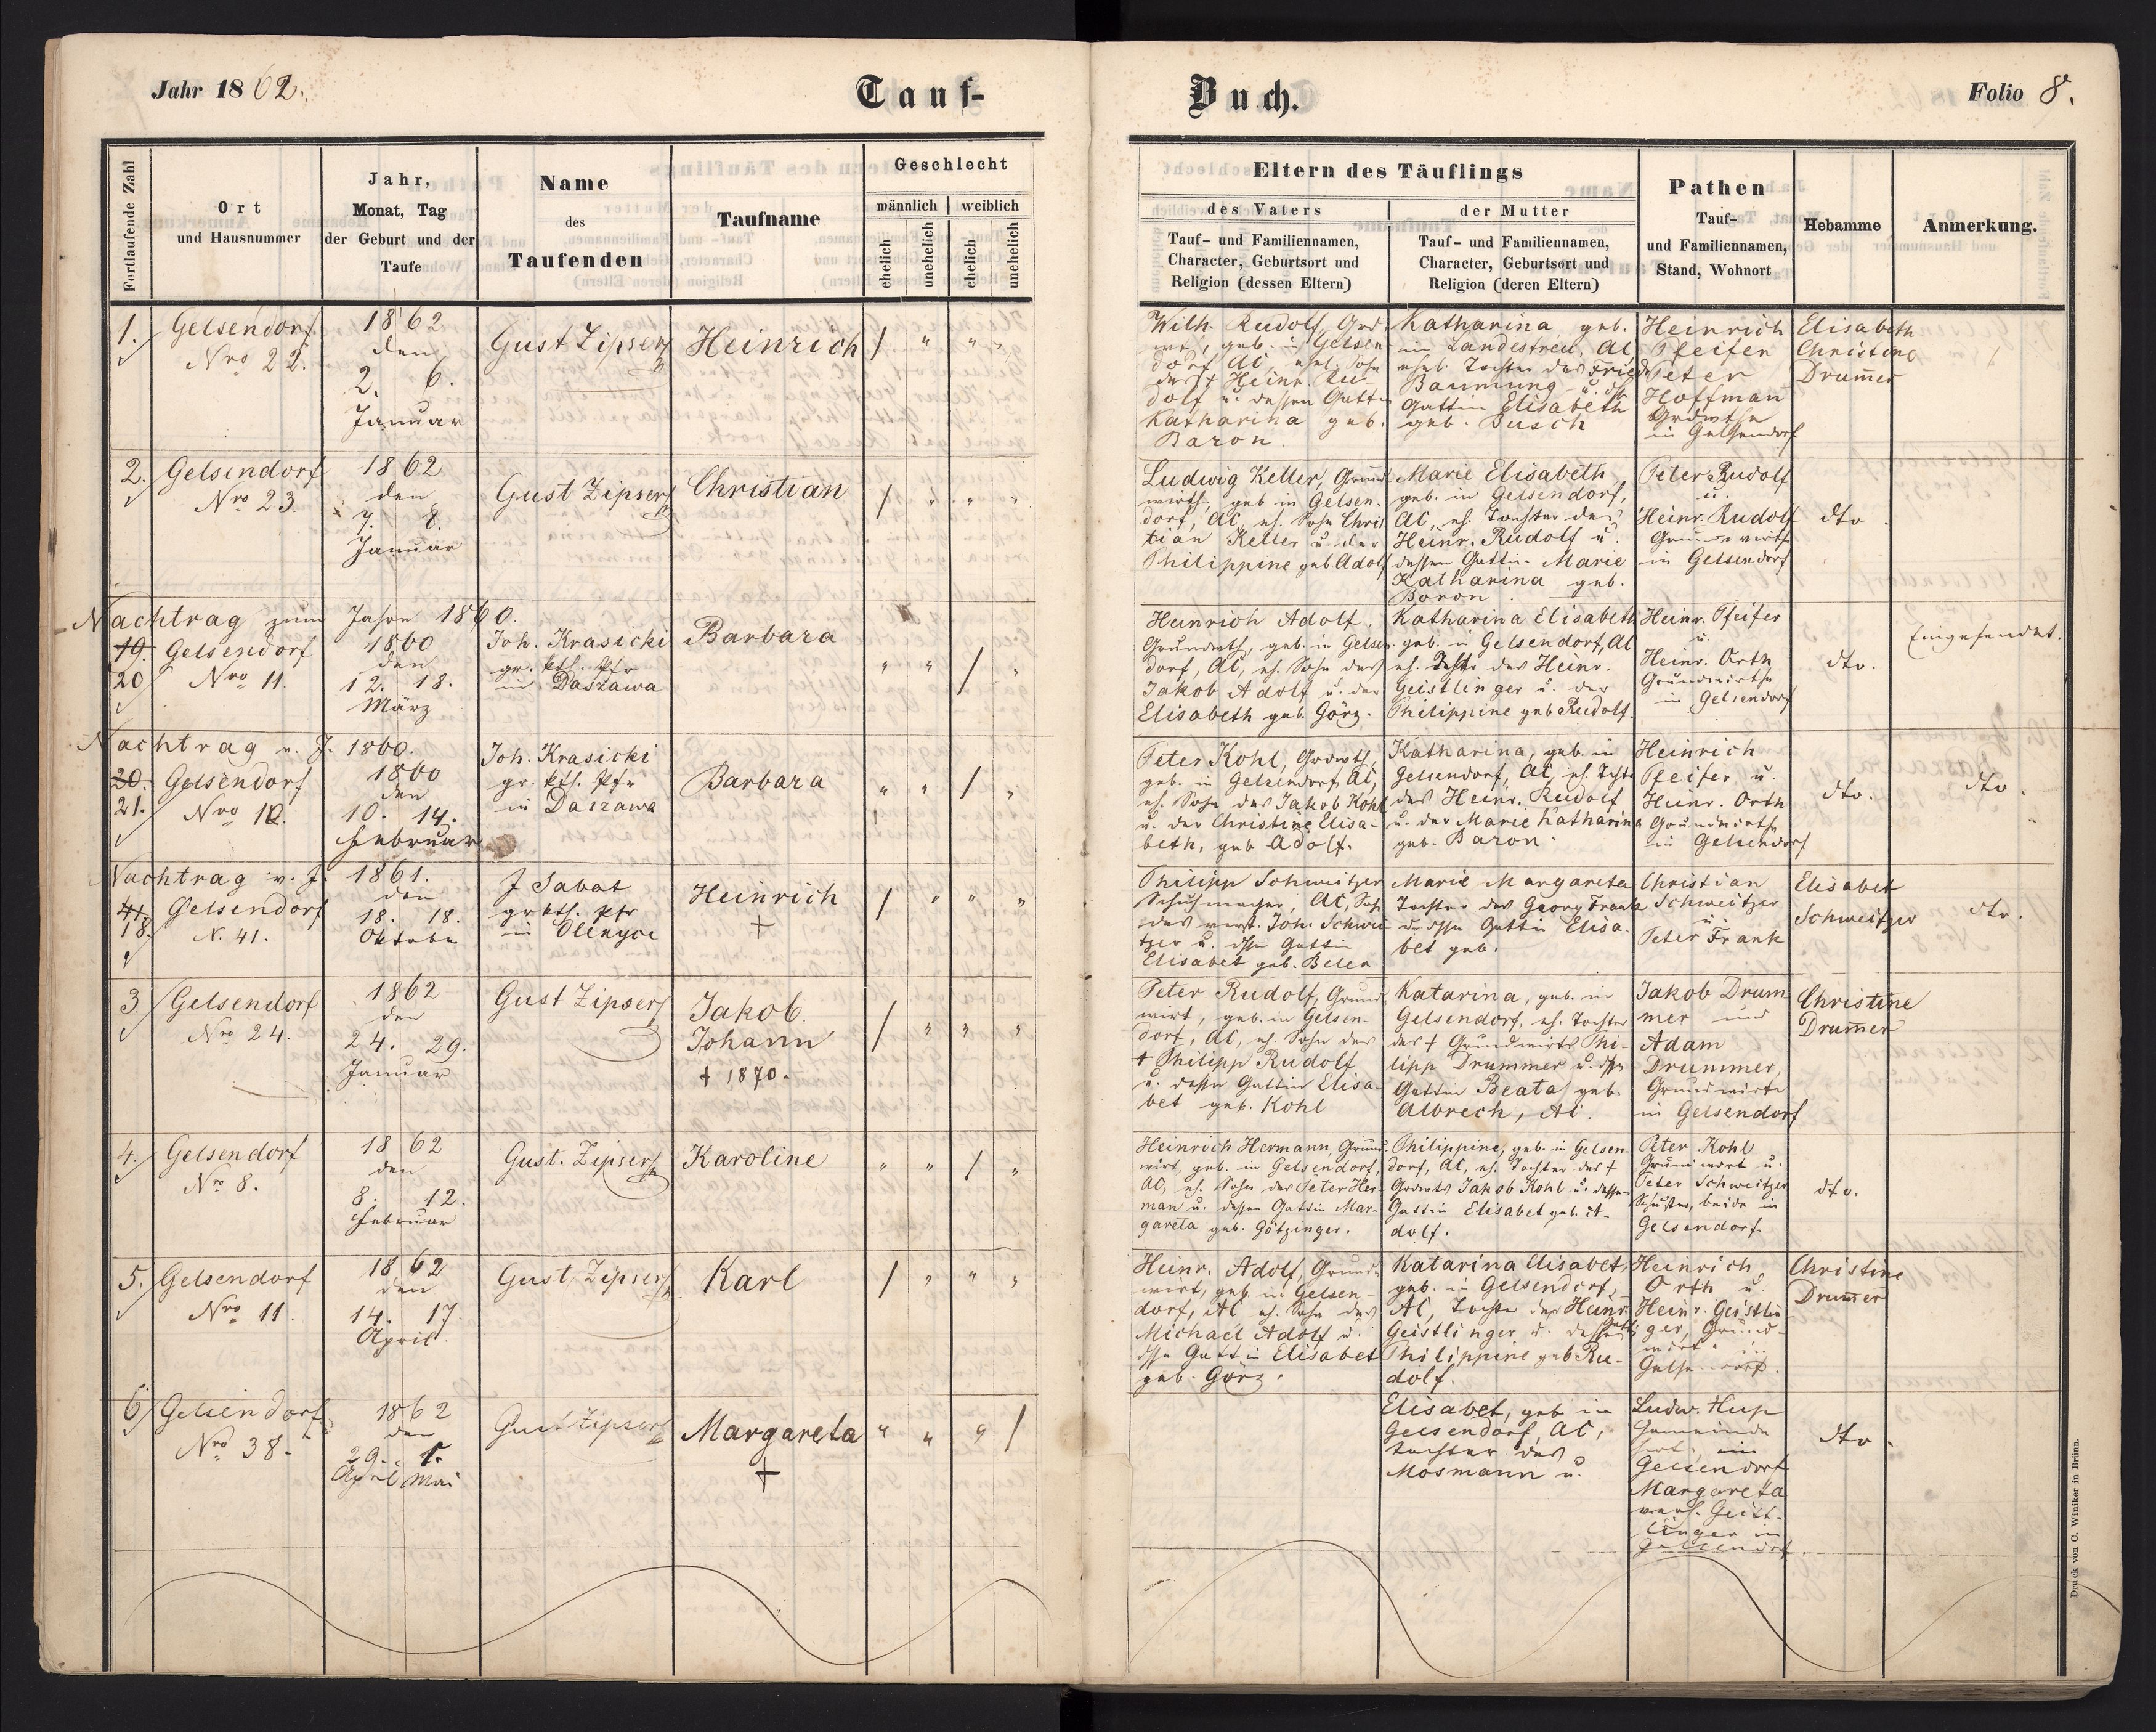 Jahr 1862.
Tauf-
Buch.
Folio 8.
Fortlaufende Zahl
Ort
und Hausnummer
Jahr,
Monat, Tag
der Geburt und der
Taufe
Name
des
Taufenden
Taufname
Geschlecht
männlich
weiblich
ehelich
unehelich
ehelich
unehelich
Eltern des Täuflings
des Vaters
Tauf- und Familiennamen,
Character, Geburtsort und
Religion (dessen Eltern)
der Mutter
Tauf- und Familiennamen,
Character, Geburtsort und
Religion (deren Eltern)
Pathen
Tauf-
und Familiennamen,
Stand, Wohnort
Hebamme
Anmerkung.
1.
Gelsendorf
Nro 22.
1862
den
2. 6.
Januar
Gust Zipser
Heinrich
/ " " "
Wilh. Rudolf, Grd
wt, geb. in Gelsen
dorf AC, ehel. Sohn
des † Heinr. Ru-
dolf u. dessen Gattin
Katharina geb.
Baron.
Katharina geb.
in Landestreu, AC
ehel. Tochter des Fried
Baumung u. dss
Gattin Elisabeth
geb. Busch
Heinrich
Pfeifer
Peter
Hoffman
Grdwthe
in Gelsendorf
Elisabeth
Christine
Drum̅er
2.
Gelsendorf
Nro 23.
1862
den
7. 8.
Januar
Gust Zipser
Christian
/ " " "
Ludwig Keller, Grund
wirth, geb in Gelsen-
dorf, AC, eh. Sohn Chris
tian Keller u. der
Philippine geb. Adolf
Marie Elisabeth
geb. in Gelsendorf,
AC, eh. Tochter des
Heinr. Rudolf u.
dessen Gattin Marie
Katharina geb.
Boron.
Peter Rudolf
u.
Heinr. Rudolf
Grundwirthe
in Gelsendorf
dto
Nachtrag zum Jahre 1860.
19.
20
Gelsendorf
Nro 11.
1860
den
12. 18.
März
Joh. Krasicki
gr. kth. Pfr
in Daszawa
Barbara
" " / "
Heinrich Adolf,
Grundwth, geb. in Gelsen-
dorf, AC, eh. Sohn des
Jakob Adolf u. der
Elisabeth geb. Görz.
Katharina Elisabeth
geb. in Gelsendorf, AC
eh. Tcht. des Heinr.
Geistlinger u. der
Philippine geb Rudolf.
Heinr. Pfeifer
u.
Heinr. Orth
Grundwirthe
in Gelsendorf
dto.
Eingesendet.
Nachtrag v. J. 1860.
20.
21.
Gelsendorf
Nro 10.
1860
den
10. 14.
Februar
Joh. Krasicki
gr. kth. Pfr
in Daszawa
Barbara
" " / "
Peter Kohl, Grdwth,
geb. in Gelsendorf, AC,
eh. Sohn des Jakob Kohl
u. der Christine Elisa-
beth, geb Adolf.
Katharina, geb. in
Gelsendorf, AC, eh. Tcht
des Heinr. Rudolf
u. der Marie Katharina
geb. Baron.
Heinrich
Pfeifer u.
Heinr. Orth
Grundwirthe
in Gelsendorf
dto.
dto.
Nachtrag v. J. 1861.
41.
18.
Gelsendorf
N. 41.
den
18. 18.
Oktober
J Sabat
gr kth. Pfr
in Olenyce
Heinrich
+
/ " " "
Philipp Schweitzer
Schuhmacher, AC, Sohn
des verst. Joh. Schwei
tzer u. dssn Gattin
Elisabet geb. Beler
Marie Margareta
Tochter des Georg Frank
u. dssn Gattin Elisa-
bet geb.
Christian
Schweitzer
u.
Peter Frank
Elisabet
Schweitzer
dto.
3.
Gelsendorf
Nro 24.
1862
den
24. 29.
Januar
Gust Zipser
Jakob
Johann
† 1870.
/ " " "
Peter Rudolf, Grund
wirt, geb. in Gelsen-
dorf, AC, eh. Sohn des
† Philipp Rudolf
u. dessen Gattin Elisa-
bet geb. Kohl
Katarina, geb. in
Gelsendorf, eh. Tochter
des † Grundwirts Phi-
lipp Drummer u. dssn
Gattin Beata geb.
Albrech, AC.
Jakob Drum
mer und
Adam
Drummer,
Grundwirte
in Gelsendorf
Christine
Drum̅er
4.
Gelsendorf
Nro 8.
1862
den
8. 12.
Februar
Gust. Zipser
Karoline
" " / "
Heinrich Hermann, Grund-
wirt, geb. in Gelsendorf,
AC, eh. Sohn des Peter Her-
man u. dessen Gattin Mar-
gareta geb. Götzinger.
Philippine, geb. in Gelsen-
dorf, AC, eh. Tochter des †
Grdwts Jakob Kohl u. dessen
Gattin Elisabet geb. A-
dolf.
Peter Kohl
Grundwirt u.
Peter Schweitzer
Schuster, beide in
Gelsendorf
dto.
5.
Gelsendorf
Nro 11.
1862
den
14. 17.
April
Gust. Zipser
Karl
/ " " "
Heinr. Adolf, Grund-
wirt, geb. in Gelsen-
dorf, AC eh. Sohn des
Michael Adolf u.
dssn Gattin Elisabet
geb. Görz.
Katarina Elisabet,
geb. in Gelsendorf,
AC, Tochter des Heinr.
Geistlinger u. dessen
Philippine geb Ru-
dolf.
Heinrich
Orth u.
Heinr. Geistlin
ger, Grund-
wirt in
Gelsendorf.
Christine
Drum̅er
6
Gelsendorf
Nro 38.
1862
den
29. 1.
April Mai
Gust Zipser
Margareta
+
" " " /
Elisabet, geb in
Gelsendorf, AC,
Tochter des
Mosmann u.
Ludw. Hup
Gemeinde
in
Gelsendorf
Margareta
verh. Geist-
linger in
Gelsendorf.
dto.
Druck von C. Winiker in Brünn.